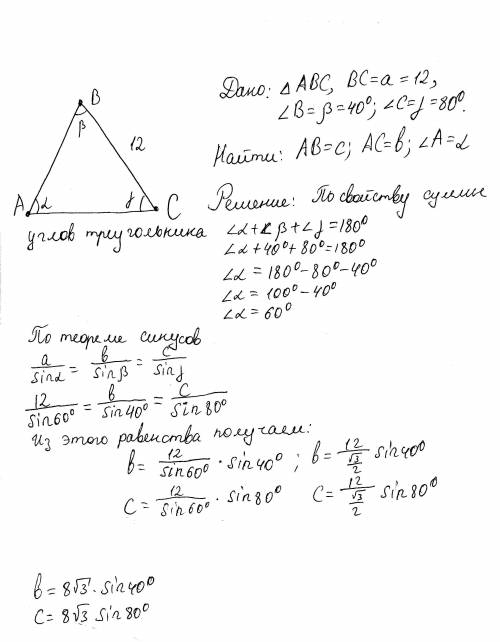 Дано: △ABC, BC=a=12,
∠B=β=40°; ∠C=γ=80°.
Найти: AB=c; AC=b; ∠A=α
B
β
12
A
α
γ
C
Решение: По свойству суммы
углов треугольника
∠α+∠β+∠γ=180°
∠α+40°+80°=180°
∠α=180°-80°-40°
∠α=100°-40°
∠α=60°
По теореме синусов
a/sinα = b/sinβ = c/sinγ
12/sin60° = b/sin40° = c/sin80°
Из этого равенства получаем:
b = 12/sin60° · sin40° ; b = 12/(√3/2) sin40°
C = 12/sin60° · sin80° C = 12/(√3/2) sin80°
b = 8√3 · sin40°
c = 8√3 sin80°